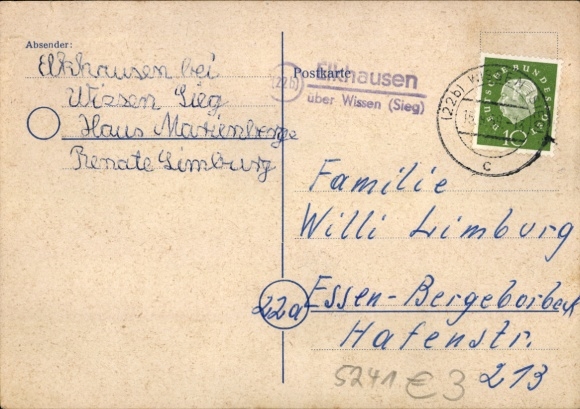 Absender:
Elkhausen bei
Wissen Sieg
Haus Marienberge
Renate Limburg
Postkarte
(22b)
Elkhausen
über Wissen (Sieg)
(22b) WISSEN
c
DEUTSCHE BUNDESPOST
10
Familie
Willi Limburg
22a Essen-Bergeborbeck
Hafenstr.
213
5241 € 3